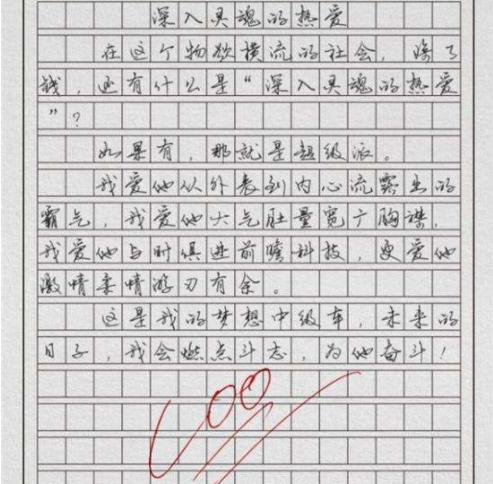 深入灵魂的热爱
在这个物欲横流的社会，除了
钱，还有什么是“深入灵魂的热爱
”？
如果有，那就是超级派。
我爱他从外表到内心流露出的
霸气，我爱他大气肚量宽广胸襟，
我爱他与时俱进前瞻科技，更爱他
激情柔情游刃有余。
这是我的梦想中级车，未来的
日子，我会燃点斗志，为他奋斗！
100